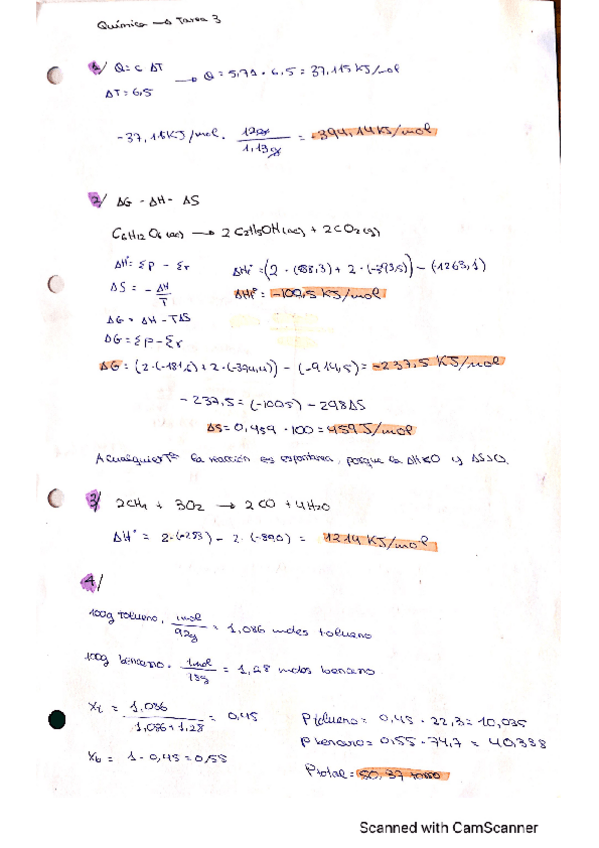 Química → Tarea 3
1/ Q = c ΔT → Q = 5,71 · 6,5 = 37,115 KJ/mol
ΔT = 6,5
-37,115 KJ/mol · 12g / 1,13g = -394,14 KJ/mol
2/ ΔG - ΔH - ΔS
C6H12O6(ac) → 2C2H5OH(ac) + 2CO2(g)
ΔH° = Σp - Σr
ΔHr° = (2 · (-88,3) + 2 · (-393,5)) - (-1263,1)
ΔS = - ΔH / T
ΔHr° = -100,5 KJ/mol
ΔG = ΔH - TΔS
ΔG = Σp - Σr
ΔG = (2·(-181,6) + 2·(-394,4)) - (-914,5) = -237,5 KJ/mol
-237,5 = (-100,5) - 298ΔS
ΔS = 0,459 · 100 = 459 J/mol
A cualquier Tª la reacción es espontánea, porque la ΔH<0 y ΔS>0.
3/ 2CH4 + 3O2 → 2CO + 4H2O
ΔH° = 2·(+283) - 2·(-890) = 1214 KJ/mol
4/
100g tolueno · 1mol / 92g = 1,086 moles tolueno
100g benceno · 1mol / 78g = 1,28 moles benceno
Xt = 1,086 / 1,086 + 1,28 = 0,45
P tolueno = 0,45 · 22,3 = 10,035
P benceno = 0,55 · 74,7 = 40,338
Xb = 1 - 0,45 = 0,55
Ptotal = 50,37 torr
Scanned with CamScanner